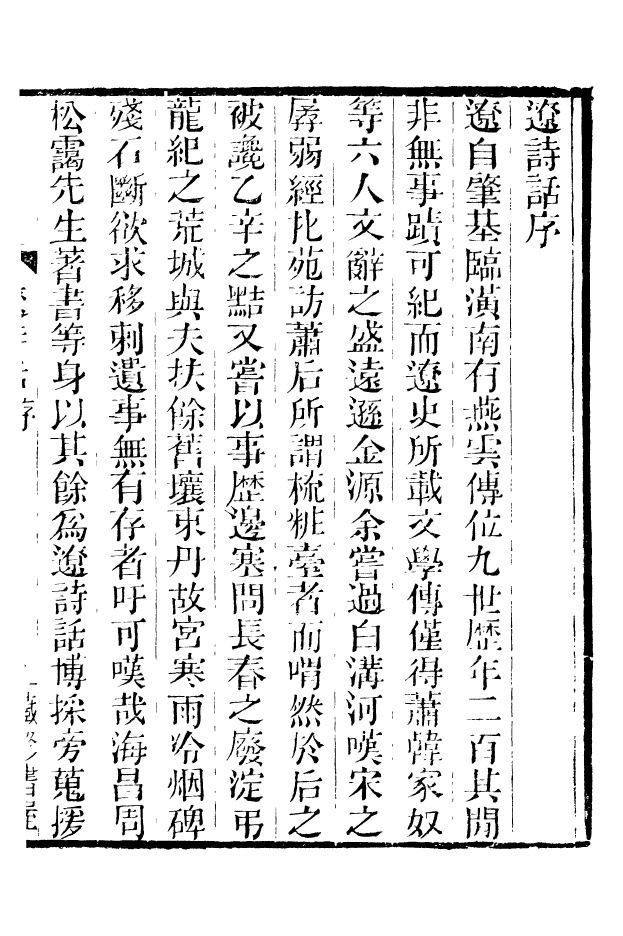 遼詩話序
遼自肇基臨潢南有燕雲傳位九世歷年二百其閒
非無事蹟可紀而遼史所載文學傳僅得蕭韓家奴
等六人文辭之盛遠遜金源余嘗過白溝河嘆宋之
孱弱經北苑訪蕭后所謂梳粧臺者而喟然於后之
被讒乙辛之黠又嘗以事歷邊塞問長春之廢淀弔
龍紀之荒城與夫扶餘舊壤東丹故宮寒雨冷烟碑
殘石斷欲求移剌遺事無有存者吁可嘆哉海昌周
松靄先生著書等身以其餘爲遼詩話博採旁蒐援
序
一
藏修書屋